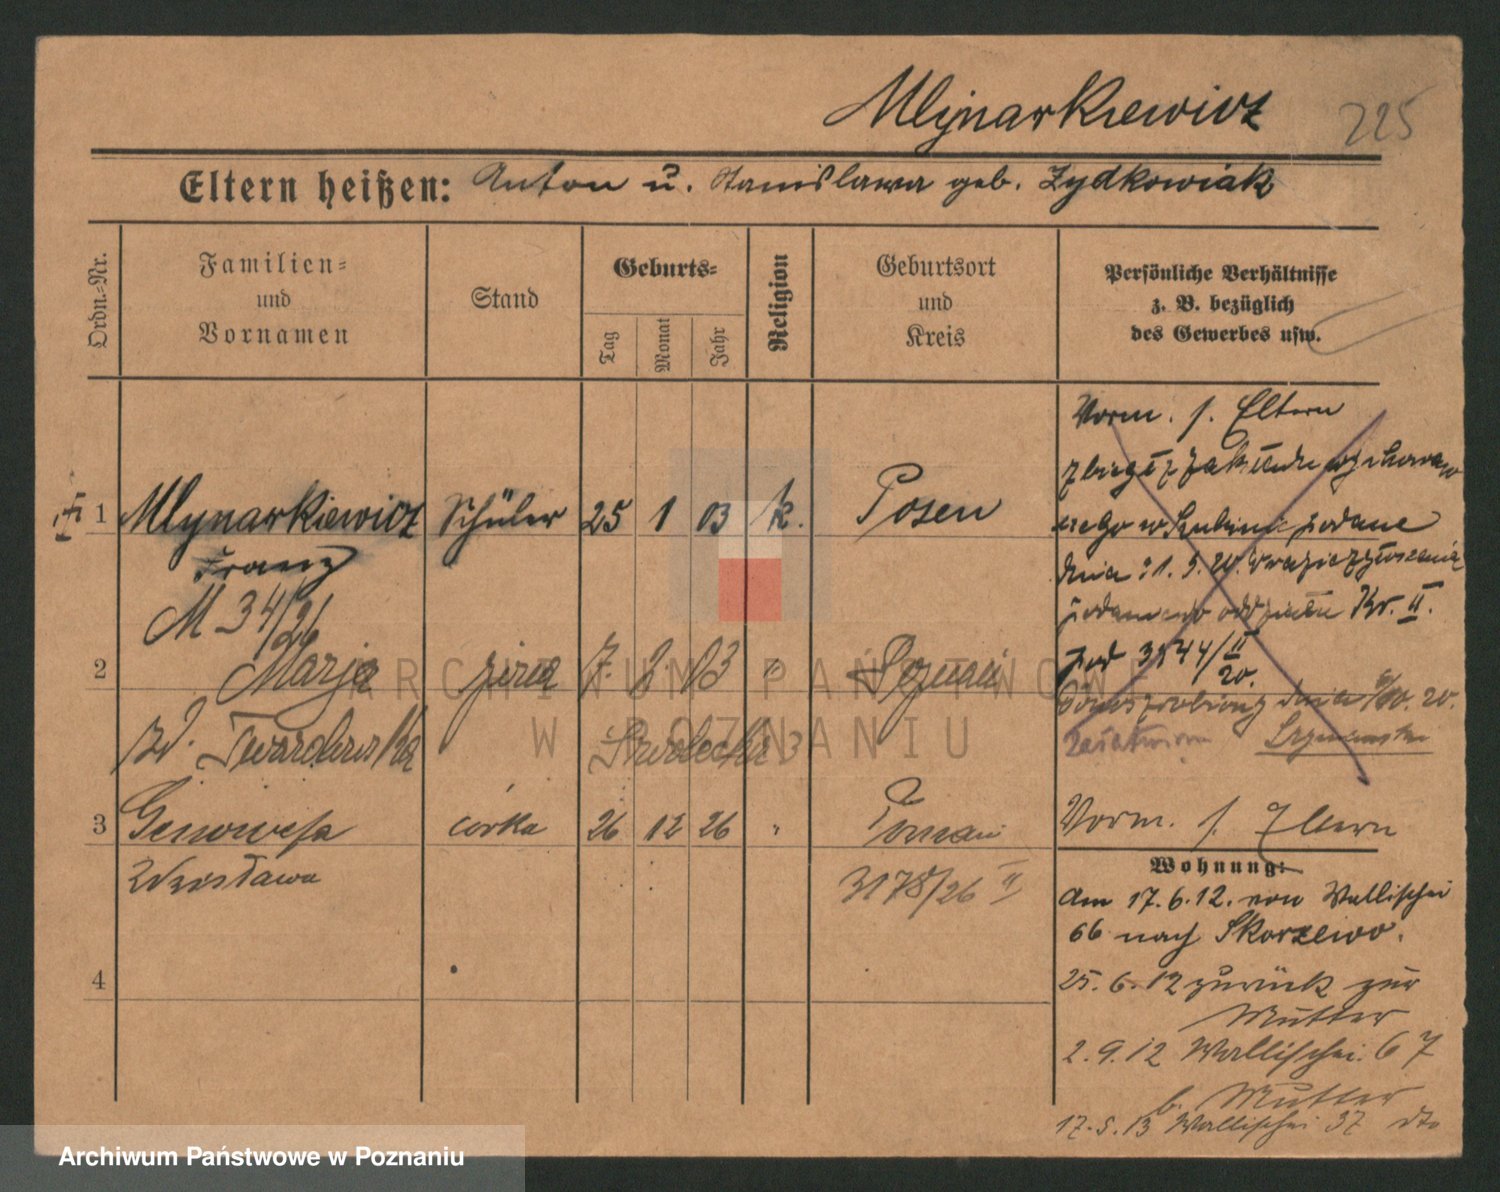 Mlynarkiewicz 225
Eltern heißen: Anton u. Stanislawa geb. Zydkowiak
Ordn.-Nr.
Familien-
und
Vornamen
Stand
Geburts-
Tag
Monat
Jahr
Religion
Geburtsort
und
Kreis
Persönliche Verhältnisse
z. B. bezüglich
des Gewerbes usw.
1 Mlynarkiewicz Schüler 25 1 03 k. Posen
Franz
M 34/26
2 Marja żona 7. 8 03 " Poznań
zd. Twardowska
3 Genowefa córka 26 12 26 " Poznań
Zdzisława 3178/26 II
4
Vorm. s. Eltern
zbiegł z zakładu wychowaw
czego w Szubinie podane
dnia 21. 5. 20.
Kr. II.
pod 3544/II
20.
dnia 20.
Vorm. s. Eltern
Wohnung:
Am 17. 6. 12. von Wallischei
66 nach Skorzewo.
25. 6. 12 zurück zur
Mutter
2. 9. 12 Wallischei 67
b. Mutter
17. 5. 13 Wallischei 37 dto
ARCHIWUM PAŃSTWOWE
W POZNANIU
Archiwum Państwowe w Poznaniu